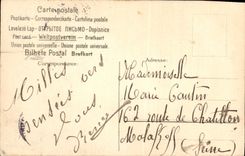 Carte postale
Postkarte - Correspondenzkarte - Cartolina postale
Levelező-Lap - ОТКРЫТОЕ ПИСЬМО - Dopisnice
Post card - Weltpostverein - Brefkort
Union postale universelle - Unione postale universale
Bilhete Postal Brefkort
Milles
pensées
vous
Mademoiselle
Marie
162 route de Chatillon
Seine